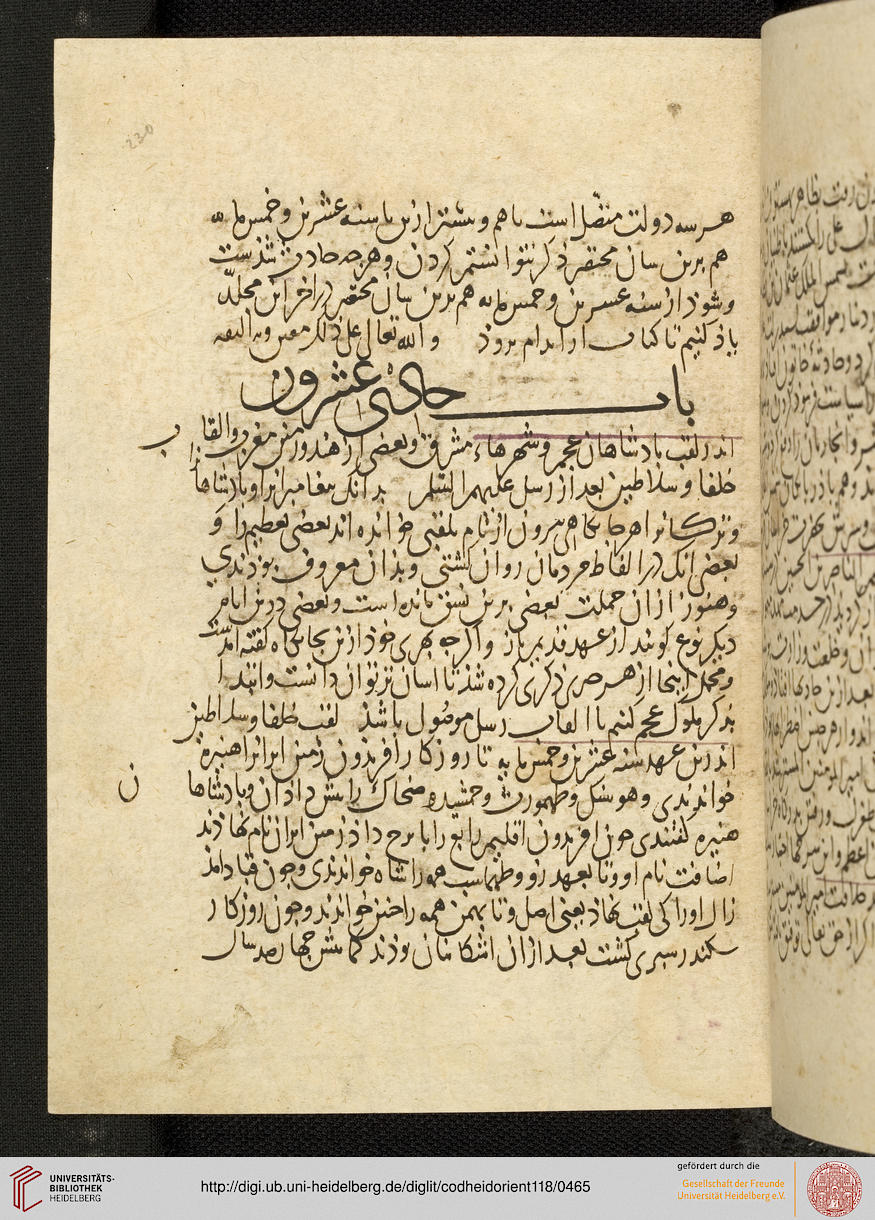 230
هر سه دولت متصل است باهم و بیشتر ازین تا سنه عشرین و خمس مایه
هم برین سان مختصر ذکر نتوانستم کردن و هرچه حادث شذست
و شوذ از سنه عشرین و خمس مایه هم برین سان مختصر در آخر این مجلد
یاذ کنیم تا کتاب او اندام بروذ والله تعالی علی ذلک معین وبه الثقه
باب حادی عشرون
اندر لقب پادشاهان عجم و شهرهاء مشرق و بعضی از هند و زمین مغرب و القاب
خلفا و سلاطین بعد از رسل علیهم السلم بدانک پیغامبرانرا و پاذشاهان
و بزرکانرا هر جایکاهی بیرون از نام بلقبی خوانده اند بعضی تعظیم را و
بعضی آنک در الفاظ مردمان روان کشتی و بذان معروف بوذندی
و هنوز از ان جملت بعضی برین نسق مانده است و بعضی درین ایام
دیکر نوع کویند از عهد قدیم باز و اکرچه بهری خوذ ازین جایکاه کفته امدست
و مجمل اینجا از هر ذکری کرده شذ تا آسان تر توان دانست و ابتدا
بذکر ملوک عجم کنیم تا القاب رسل موصول باشذ لقب خلفا و سلاطین
اندرین عهد سنه عشرین و خمس مایه تا روزکار افریذون زمین ایرانرا هنیره
خواندندی و هوشنک و طهمورث و جمشیذ و ضحاک را پیش داذان و پاذشاها
هنیره کفتندی چون افریدون اقلیم رابع را بایرج داذ زمین ایران نام نهاذند
اضافت نام او و تا بعهد زو و طهماسب همه را شاه خواندندی و چون قباد امذ
زال او را کی لقب نهاذ یعنی اصل و تا بهمن همه را چنین خواندند و چون روزکار
سکندر سپری کشت بعد از ان اشکانیان بوذند کمابیش چهارصد سال
ن
UNIVERSITÄTS-
BIBLIOTHEK
HEIDELBERG
http://digi.ub.uni-heidelberg.de/diglit/codheidorient118/0465
gefördert durch die
Gesellschaft der Freunde
Universität Heidelberg e.V.